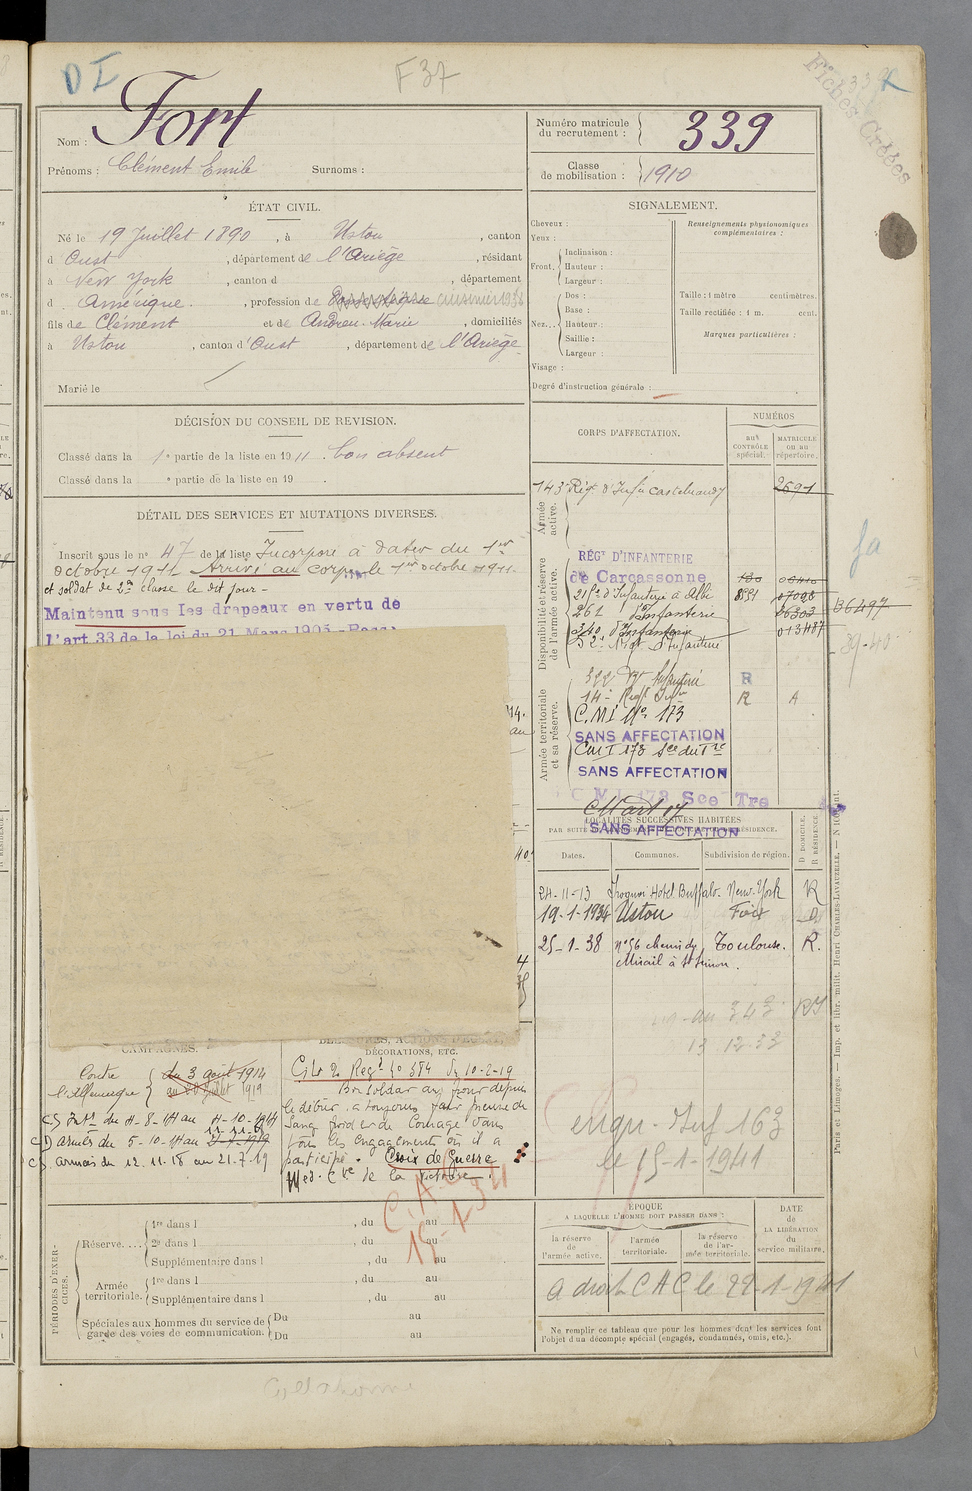 D I
F 37
Fiches Créées
Nom : Fort
Prénoms : Clément Emile Surnoms :
Numéro matricule du recrutement : 339
Classe de mobilisation : 1910
ÉTAT CIVIL.
Né le 19 Juillet 1890, à Ustou, canton
d Oust, département de l'Ariège, résidant
à New York, canton d , département
d Amérique, profession de cuisinier 1936
fils de Clément et de Andreu Marie, domiciliés
à Ustou, canton d'Oust, département de l'Ariège
Marié le
SIGNALEMENT.
Cheveux :
Yeux :
Front. Inclinaison :
Hauteur :
Largeur :
Nez... Dos :
Base :
Hauteur :
Saillie :
Largeur :
Visage :
Degré d'instruction générale :
Renseignements physionomiques
complémentaires :
Taille : 1 mètre centimètres.
Taille rectifiée : 1 m. cent.
Marques particulières :
DÉCISION DU CONSEIL DE REVISION.
Classé dans la 1e partie de la liste en 1911. bon absent
Classé dans la e partie de la liste en 19 .
DÉTAIL DES SERVICES ET MUTATIONS DIVERSES.
Inscrit sous le no 47 de la liste Incorporé à dater du 1er
Octobre 1911 Arrivé au corps le 1er octobre 1911
et soldat de 2e classe le dit jour -
Maintenu sous les drapeaux en vertu de
l'art 33 de la loi du 21 Mars 1905
CORPS D'AFFECTATION.
NUMÉROS
au CONTRÔLE spécial.
MATRICULE ou au répertoire.
Armée active.
143e Régt d'Infie Castelnaudary 2691
Disponibilité et réserve de l'armée active.
RÉGT D'INFANTERIE
de Carcassonne
215e d'Infanterie à Albi
261 d'Infanterie
340 d'Infanterie
013487
36497
39-40
Armée territoriale et sa réserve.
322 Rgt Infanterie R
14e Régt Infie R A
C.M.I No 173
SANS AFFECTATION
CMI 173 Sce du Tre
SANS AFFECTATION
C M I 173 Sce Tre
C M art 17
SANS AFFECTATION
LOCALITÉS SUCCESSIVES HABITÉES
Dates. Communes. Subdivision de région. D DOMICILE, R RÉSIDENCE.
24-11-13 Iroquoi Hotel Buffalo. New-York R
19-1-1934 Ustou Foix D
25-1-38 no 56 chemin du Mirail à St Simon. Toulouse. R.
au 343
13 12 33
CAMPAGNES.
Contre l'Allemagne du 3 août 1914
au 20 juillet 1919
C.S. Intr du 4-8-14 au 4-10-1914
C.D Armées du 5-10-14 au 11-11-18
C.S. armées du 12.11.18 au 21.7.19
DÉCORATIONS, ETC.
Cité à Regt No 384 du 10-2-19
Bon soldat au front depuis
le début. a toujours fait preuve de
sang froid et de courage dans
tous les engagements où il a
participé. Croix de Guerre
Med. Cve de la victoire.
C.A.C
15-1-34
Chgr. Inf 163
le 15-1-1941
PÉRIODES D'EXERCICES.
Réserve.... 1re dans l , du au
2e dans l , du au
Supplémentaire dans l , du au
Armée territoriale. 1re dans l , du au
Supplémentaire dans l , du au
Spéciales aux hommes du service de garde des voies de communication. Du au
Du au
ÉPOQUE
A LAQUELLE L'HOMME DOIT PASSER DANS :
la réserve de l'armée active.
l'armée territoriale.
la réserve de l'armée territoriale.
DATE de LA LIBÉRATION du service militaire.
a droit C A C le 22-1-1941
Ne remplir ce tableau que pour les hommes dont les services font
l'objet d'un décompte spécial (engagés, condamnés, omis, etc.).
Paris et Limoges. — Imp. et libr. milit. Henri CHARLES-LAVAUZELLE.